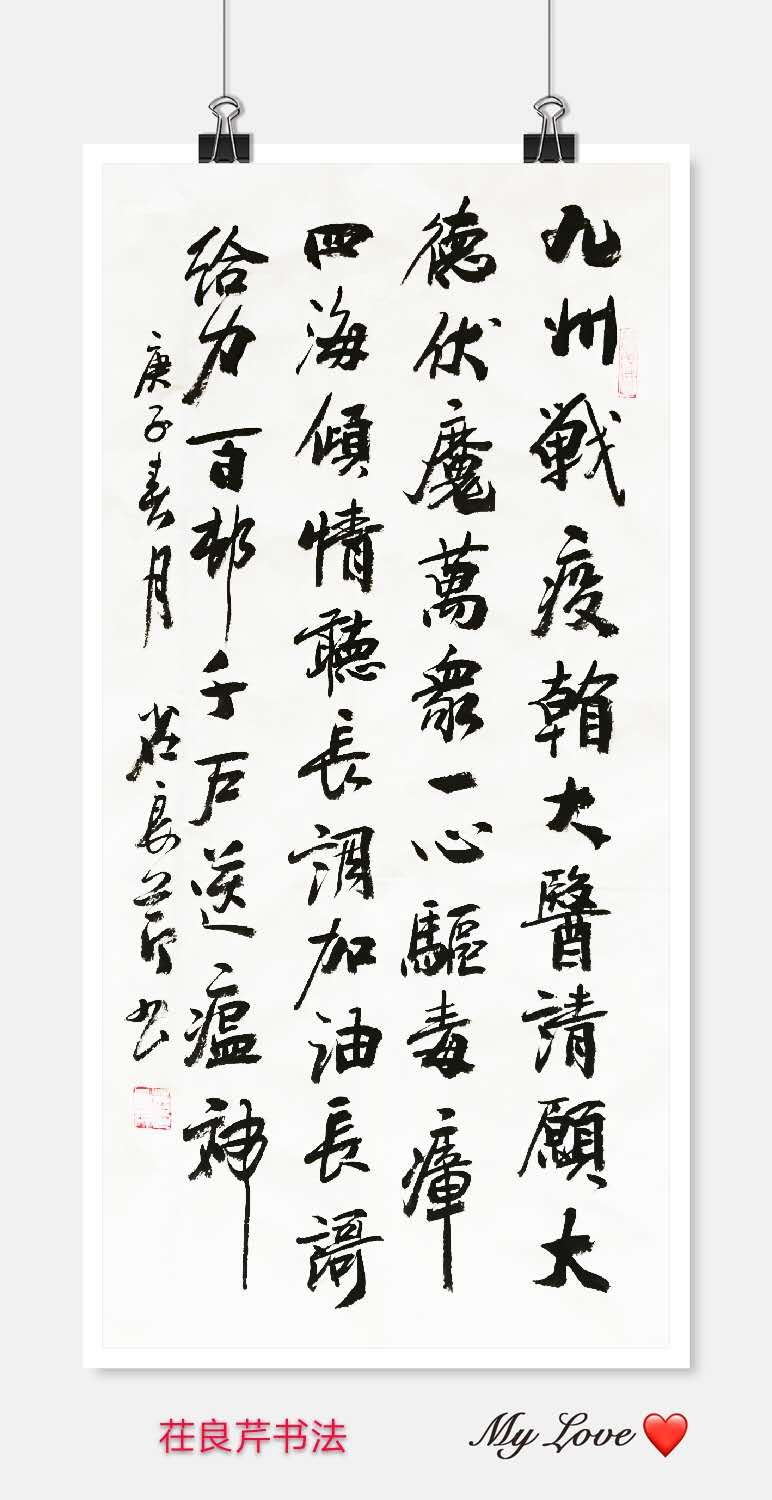 九州戰疫大醫請願大
德伏魔萬衆一心驅毒瘴
四海傾情聽長調加油長謌
给力百邨千户送瘟神
庚子春月 茌良芹书
茌良芹书法
My Love